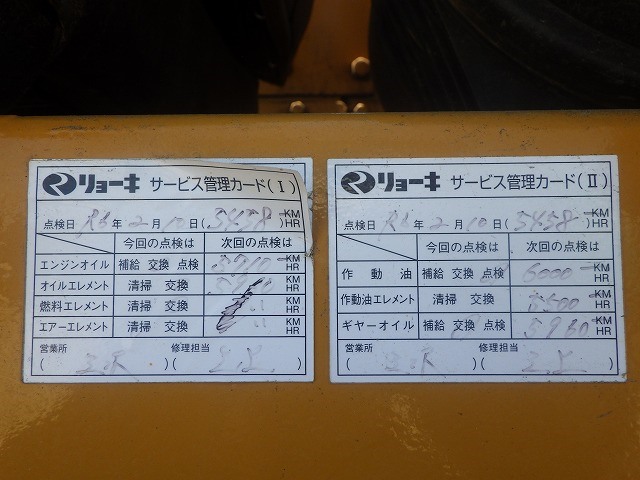 リョーキ サービス管理カード(Ⅰ)
点検日 R6年 2月 10日(5458)KM HR
今回の点検は 次回の点検は
エンジンオイル 補給 交換 点検 KM HR
オイルエレメント 清掃 交換 KM HR
燃料エレメント 清掃 交換 〃 KM HR
エアーエレメント 清掃 交換 〃 KM HR
営業所 修理担当
( ) ( )
リョーキ サービス管理カード(Ⅱ)
点検日 R6年 2月 10日(5458)KM HR
今回の点検は 次回の点検は
作動油 補給 交換 点検 6000 KM HR
作動油エレメント 清掃 交換 KM HR
ギヤーオイル 補給 交換 点検 KM HR
営業所 修理担当
( ) ( )